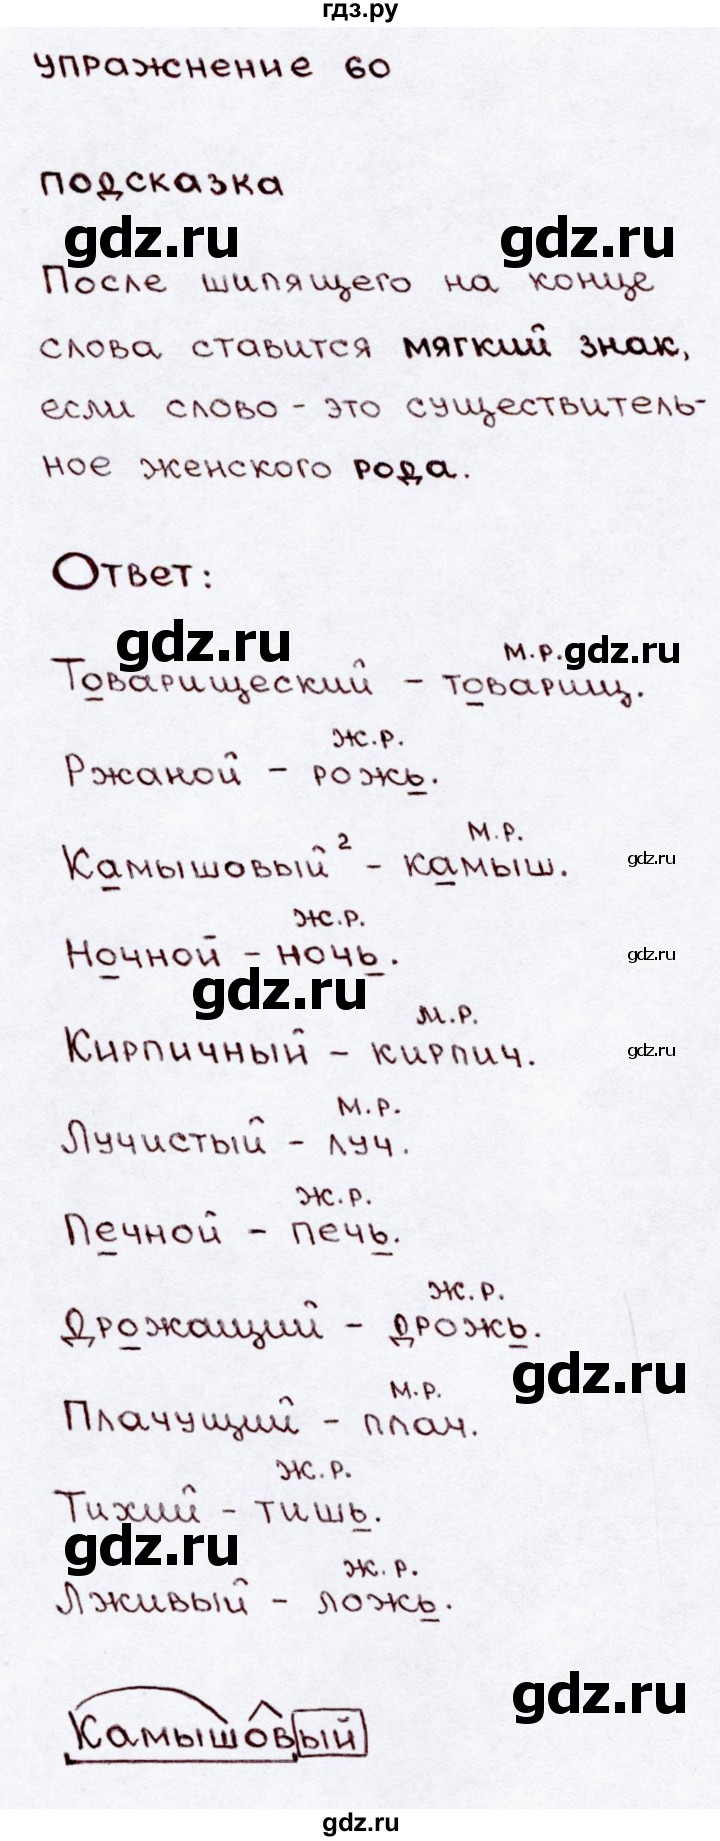 гдз.ру
упражнение 60
подсказка
gdz.ru gdz.ru
После шипящего на конце
слова ставится мягкий знак,
если слово - это существитель-
ное женского рода.
Ответ:
gdz.ru м.р. gdz.ru
Товарищеский - товарищ.
ж.р.
Ржаной - рожь.
2 м.р.
Камышовый - камыш. gdz.ru
ж.р.
Ночной - ночь. gdz.ru
gdz.ru
м.р.
Кирпичный - кирпич. gdz.ru
м.р.
Лучистый - луч.
ж.р.
Печной - печь.
ж.р.
Дрожащий - дрожь.
gdz.ru
м.р.
Плачущий - плач.
ж.р.
Тихий - тишь.
gdz.ru
ж.р.
Лживый - ложь.
gdz.ru
Камышовый
gdz.ru